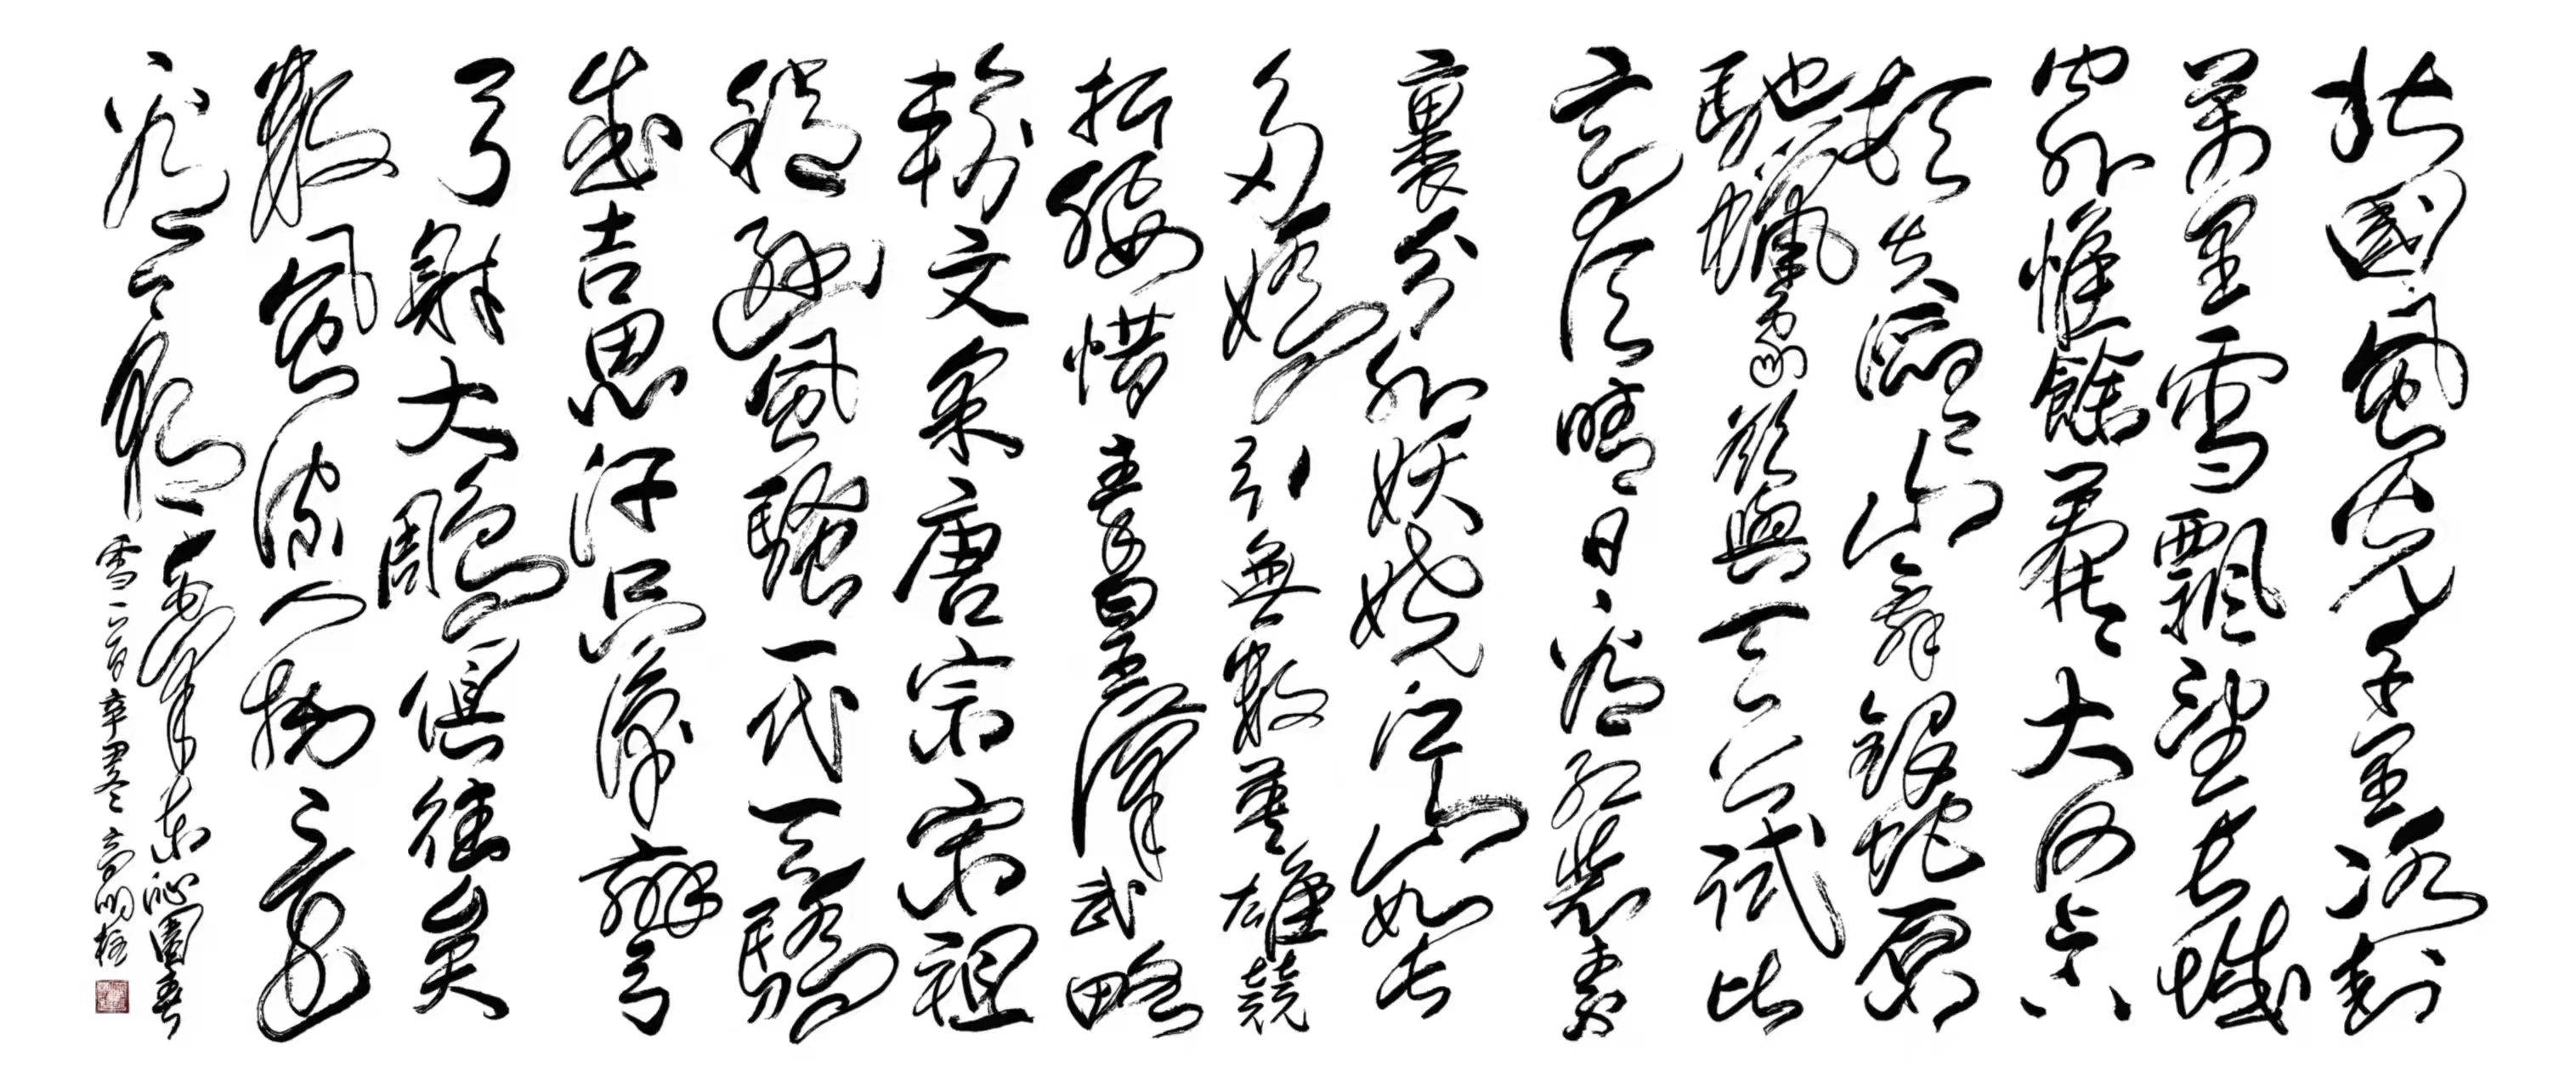 北國風光千里冰封
萬里雪飄望長城
內外惟餘莽莽大河上下
頓失滔滔山舞銀蛇原
馳蠟象欲與天公試比
高須晴日看紅裝素
裹分外妖嬈江山如此
多嬌引無數英雄競
折腰惜秦皇漢武略
輸文采唐宗宋祖
稍遜風騷一代天驕
成吉思汗只識彎
弓射大鵰俱往矣
數風流人物還
看今朝
毛澤東沁園春
雪一首辛冬高明